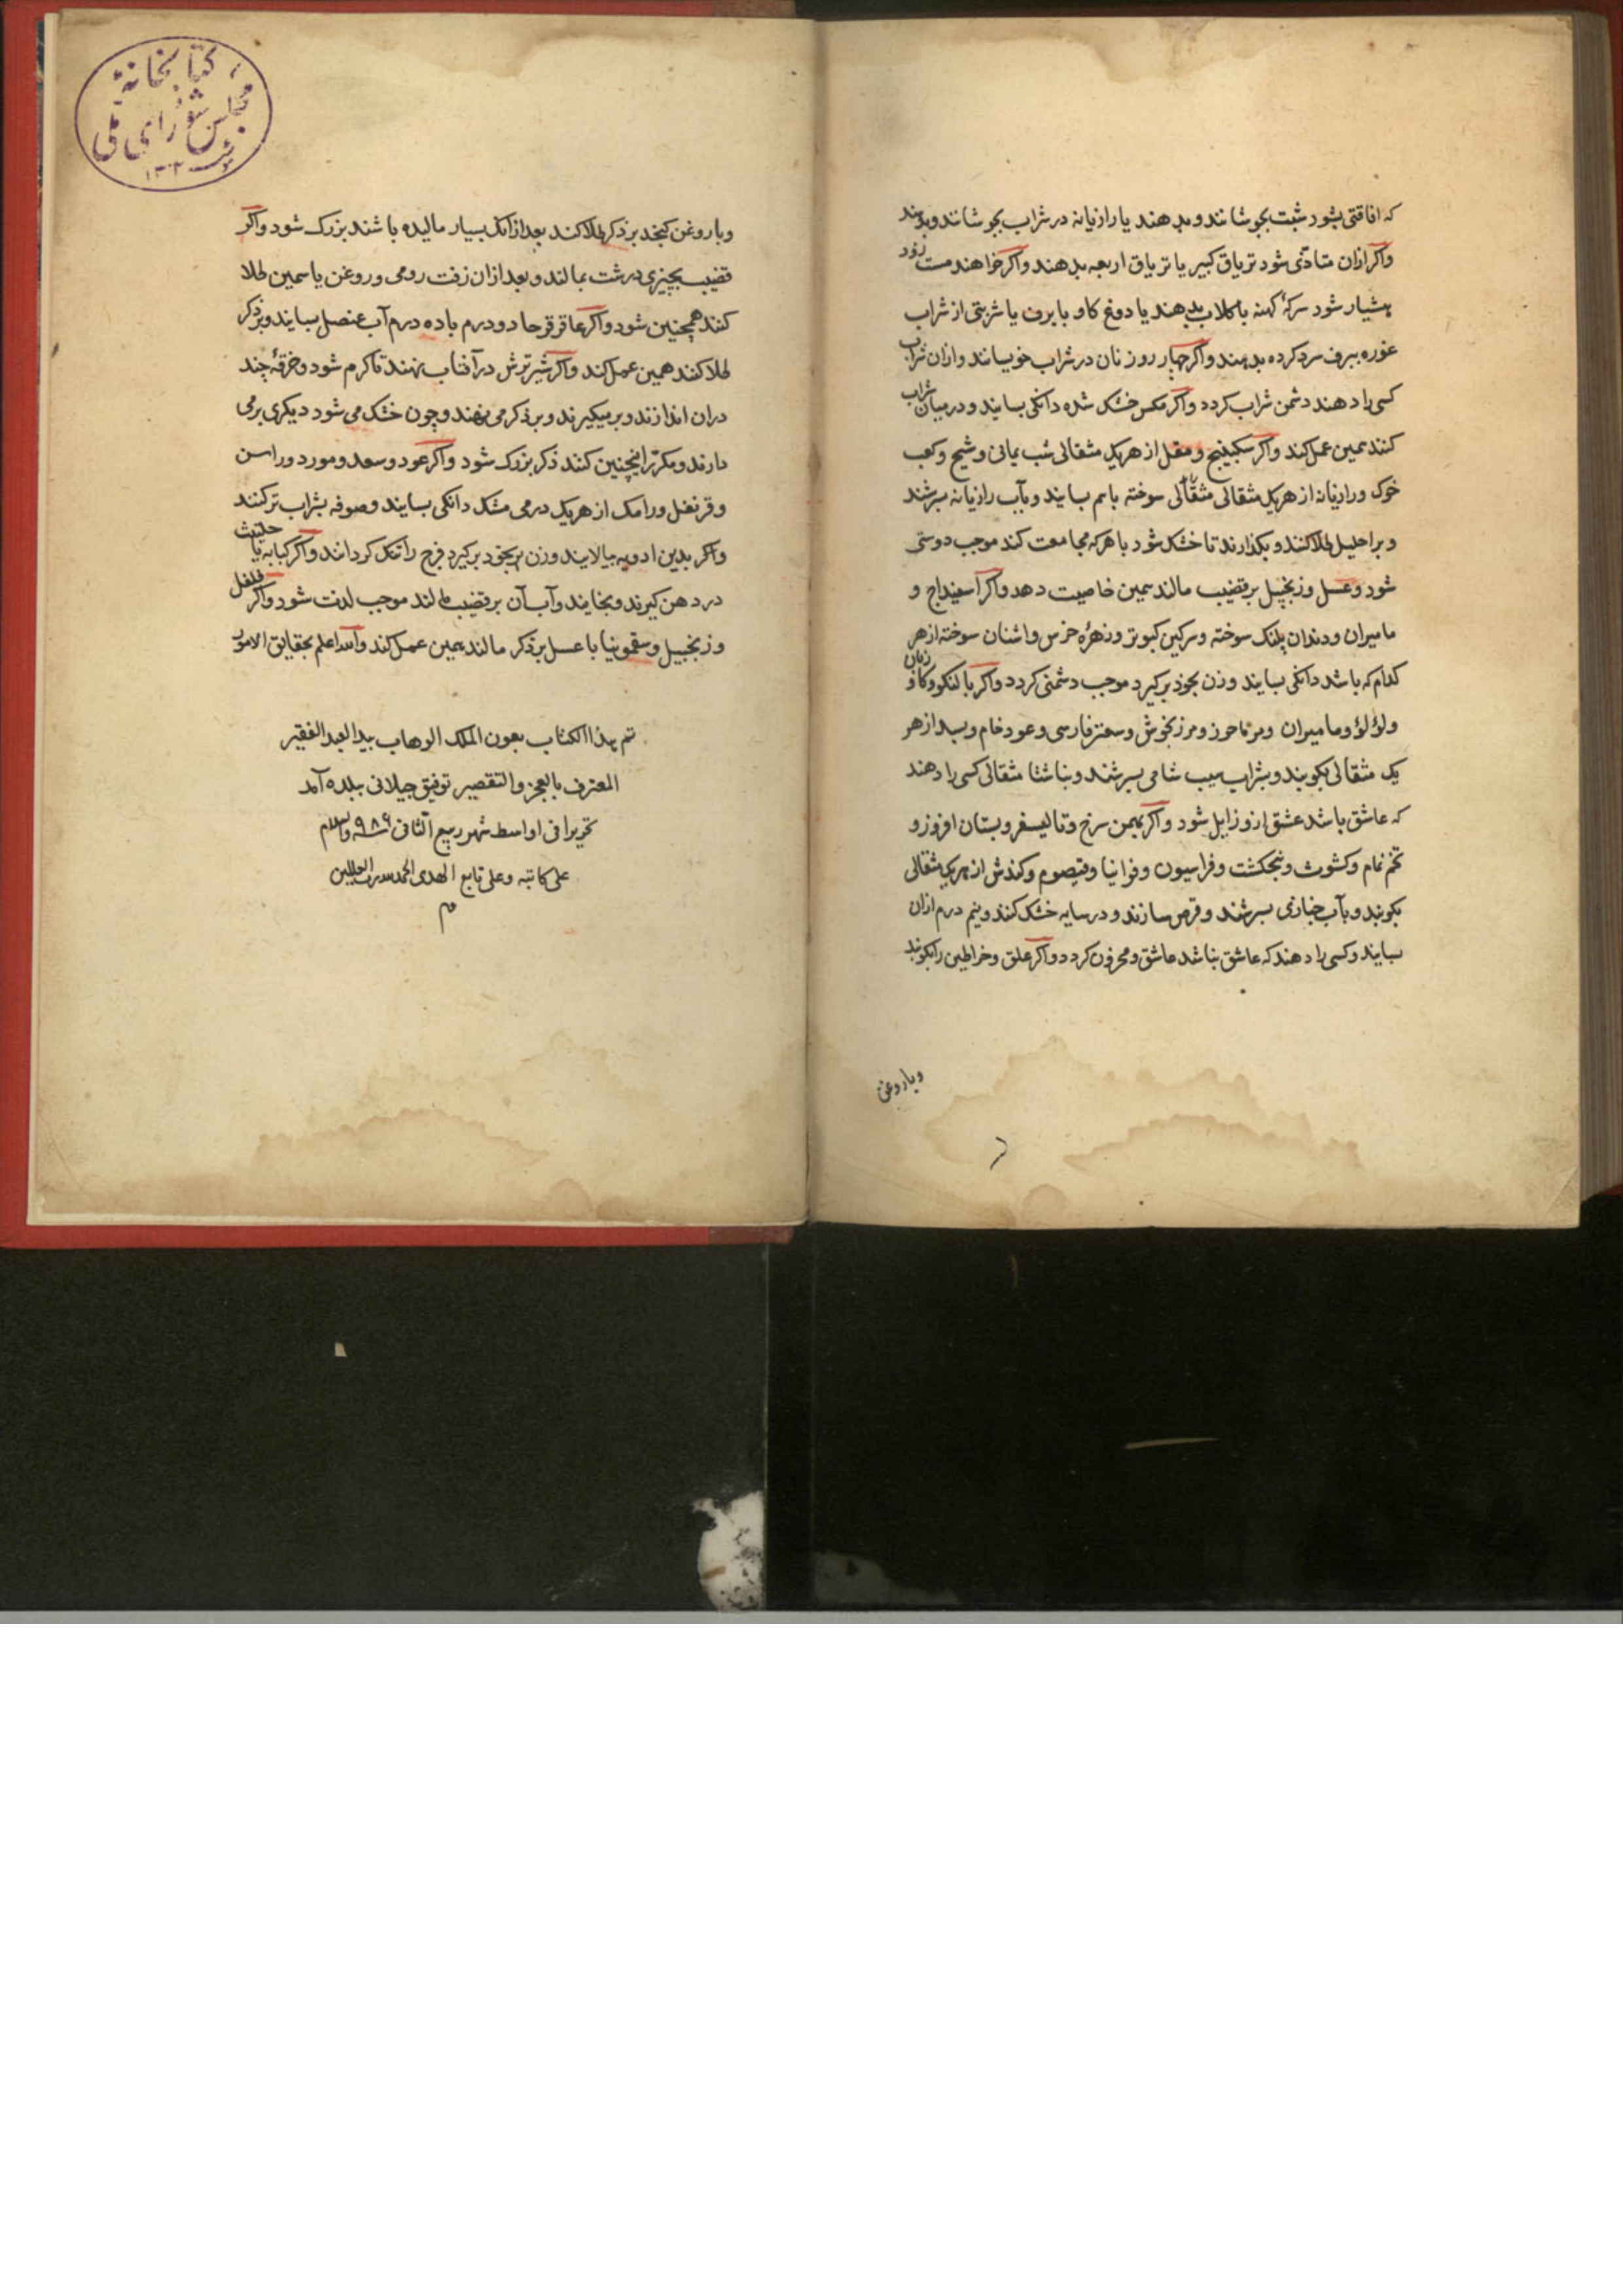 که افاقتی بشود شبت بجوشانند و بدهند یا رازیانه در شراب بجوشانند و بدهند
واکر ازان متاذی شود تریاق کبیر یا تریاق اربعه بدهند واکر خواهند مست زود
هشیار شود سرکهٔ کهنه با کلاب بدهند یا دوغ کاو با برف یا شربتی از شراب
غوره ببرف سرد کرده بدهند واکر چهار روز نان در شراب خویسانند و ازان شراب
کسی را دهند دشمن شراب کردد واکر مکس خشک شده دانکی بسایند و در میان شراب
کنند همین عمل کند واکر سکبینج و مقل از هر یک مثقالی شب یمانی و شیح و کعب
خوک و رازیانه از هر یک مثقالی مثقالی سوخته باهم بسایند و بآب رازیانه بسرشند
و بر احلیل طلا کنند و بکذارند تا خشک شود با هر که مجامعت کند موجب دوستی
شود و عسل و زنجبیل بر قضیب مالند همین خاصیت دهد واکر اسفیداج و
مامیران و دندان پلنک سوخته و سرکین کبوتر و زهرهٔ خرس و اشنان سوخته از هر
کدام که باشد دانکی بسایند و زن بخود برکیرد موجب دشمنی کردد زنان واکر بالنکو و کافو
و لؤلؤ و مامیران و مرماحوز و مرزنجوش و سعتر فارسی و عود خام و بسد از هر
یک مثقالی بکوبند و بشراب سیب شامی بسرشند و بناشتا مثقالی کسی را دهند
که عاشق باشد عشق ازو زایل شود واکر بهمن سرخ و تالیسفر و بستان افروز و
تخم نمام و کشوث و پنجنکشت و فراسیون و فوانیا و قیصوم و کندش از هر یک مثقالی
بکوبند و بآب خبازی بسرشند و قرص سازند و در سایه خشک کنند و نیم درم ازان
بسایند و کسی را دهند که عاشق نباشد عاشق و محزون کردد واکر علق و خراطین را بکوبند
وباروغن
وباروغن کنجد بر ذکر طلا کنند بعد از آنک بسیار مالیده باشند بزرک شود واکر
قضیب بچیزی درشت بمالند و بعد ازان زفت رومی و روغن یاسمین طلا
کنند همچنین شود واکر عاقرقرحا دو درم با ده درم آب عنصل بسایند و بر ذکر
طلا کنند همین عمل کند واکر شیر ترش در آفتاب نهند تا کرم شود و خرقهٔ چند
دران اندازند و بر میکیرند و بر ذکر می نهند و چون خشک می شود دیکری بر می
دارند و مکرر اینچنین کنند ذکر بزرک شود واکر عود و سعد و مورد و راسن
و قرنفل و رامک از هر یک درمی مشک دانکی بسایند و صوفه بشراب تر کنند
واکر بدین ادویه بیالایند و زن بخود برکیرد فرج را تنک کرداند واکر کبابه یا حلتیث
در دهن کیرند و بخایند و آب آن بر قضیب مالند موجب لذت شود واکر فلفل
و زنجبیل و سقمونیا با عسل بر ذکر مالند همین عمل کند والله اعلم بحقایق الامور
تم هذا الکتاب بعون الملک الوهاب بید العبد الفقیر
المعترف بالعجز والتقصیر توفیق جیلانی ببلده آمد
تحریرا فی اواسط شهر ربیع الثانی سنه ۹۸۶ والسلم
علی کاتبه و علی تابع الهدی الحمد لله رب العالمین
م
کتابخانهٔ
مجلس شورای ملی
۱۳۰۲